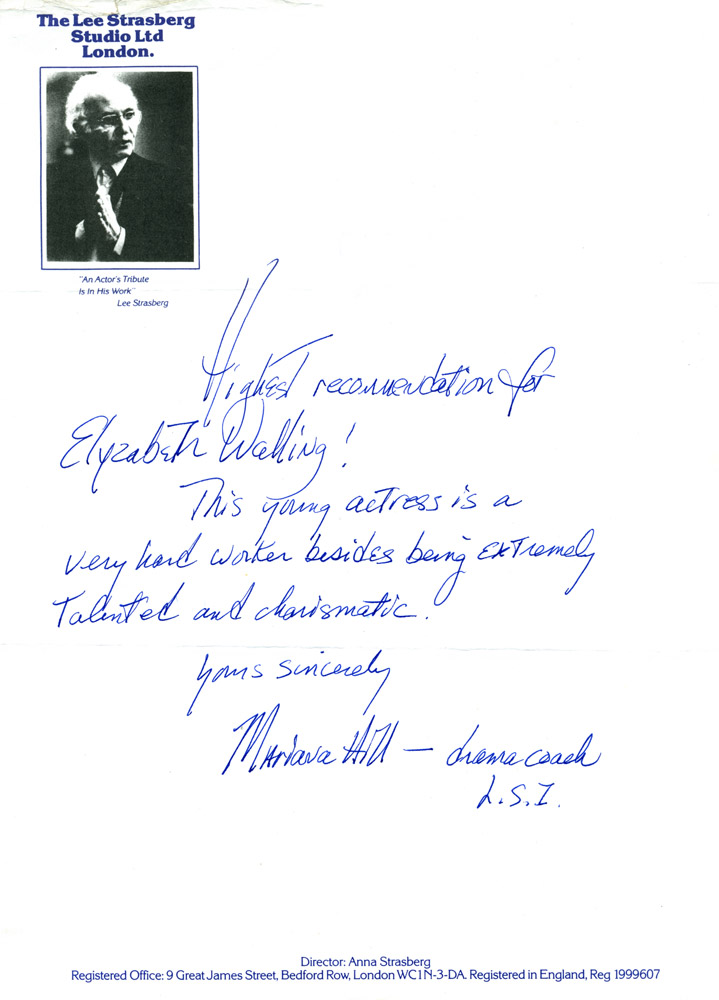 The Lee Strasberg
Studio Ltd
London.
"An Actor's Tribute
Is In His Work"
Lee Strasberg
Highest recommendation for
Elyzabeth Walling!
This young actress is a
very hard worker besides being extremely
talented and charismatic.
yours sincerely
Mariana Hill — drama coach
L.S.I.
Director: Anna Strasberg
Registered Office: 9 Great James Street, Bedford Row, London WC1N-3-DA. Registered in England, Reg 1999607